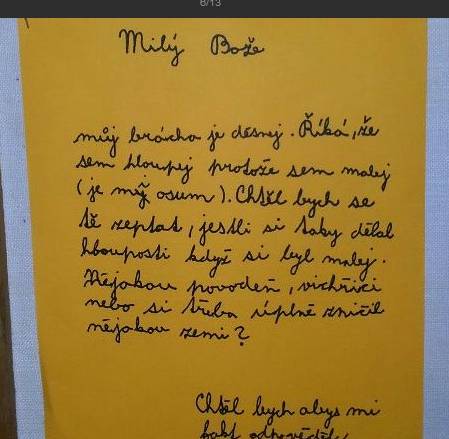 6/13
Milý Bože
můj brácha je děsnej. Říká, že
sem hloupej protože sem malej
(je mǐ osum). Chtěl bych se
tě zeptat, jestli si taky dělal
hlouposti když si byl malej.
Nějakou povodeň, vichřici
nebo si třeba úplně zničil
nějakou zemi?
Chtěl bych abys mi
fakt odpověděl.